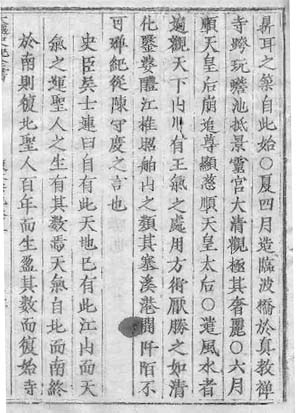 鼎耳之築自此始○夏四月造臨波橋於真教禪
寺跨玩蟾池抵景靈宮大清觀極其奢麗○六月
順天皇后崩追尊顯慈順天皇太后○遣風水者
遍觀天下山川有王氣之處用方術厭勝之如清
化鑿婆體江推照舶內之類其塞溪港開阡陌不
可殫紀從陳守度之言也
史臣吳士連曰自有此天地已有此江山而天
氣之運聖人之生有其數焉天氣自北而南終
於南則復北聖人百年而生盈其數而復始寺